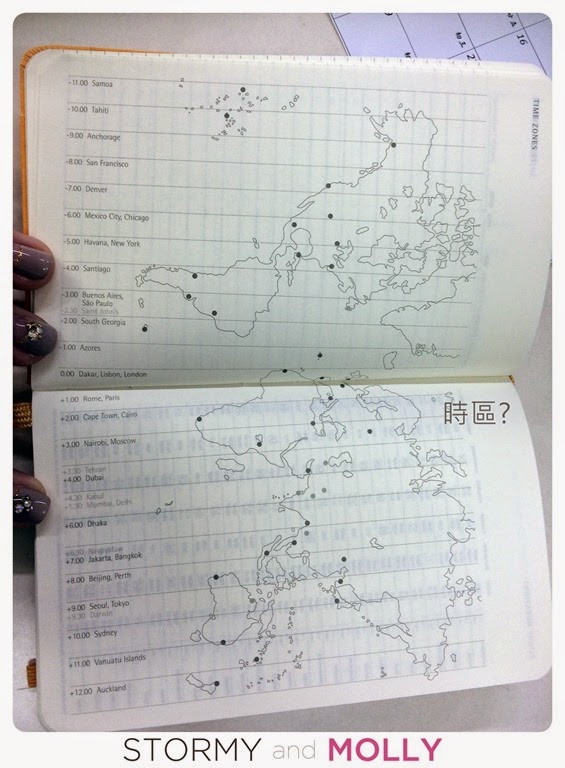 16
TIME ZONES
-11.00 Samoa
-10.00 Tahiti
-9.00 Anchorage
-8.00 San Francisco
-7.00 Denver
-6.00 Mexico City, Chicago
-5.00 Havana, New York
-4.00 Santiago
-3.00 Buenos Aires,
São Paulo
-3.30 Saint John's
-2.00 South Georgia
-1.00 Azores
0.00 Dakar, Lisbon, London
+1.00 Rome, Paris
+2.00 Cape Town, Cairo
時區?
+3.00 Nairobi, Moscow
+3.30 Tehran
+4.00 Dubai
+4.30 Kabul
+5.30 Mumbai, Delhi
+6.00 Dhaka
+7.00 Jakarta, Bangkok
+8.00 Beijing, Perth
+9.00 Seoul, Tokyo
+9.30 Darwin
+10.00 Sydney
+11.00 Vanuatu Islands
+12.00 Auckland
STORMY and MOLLY